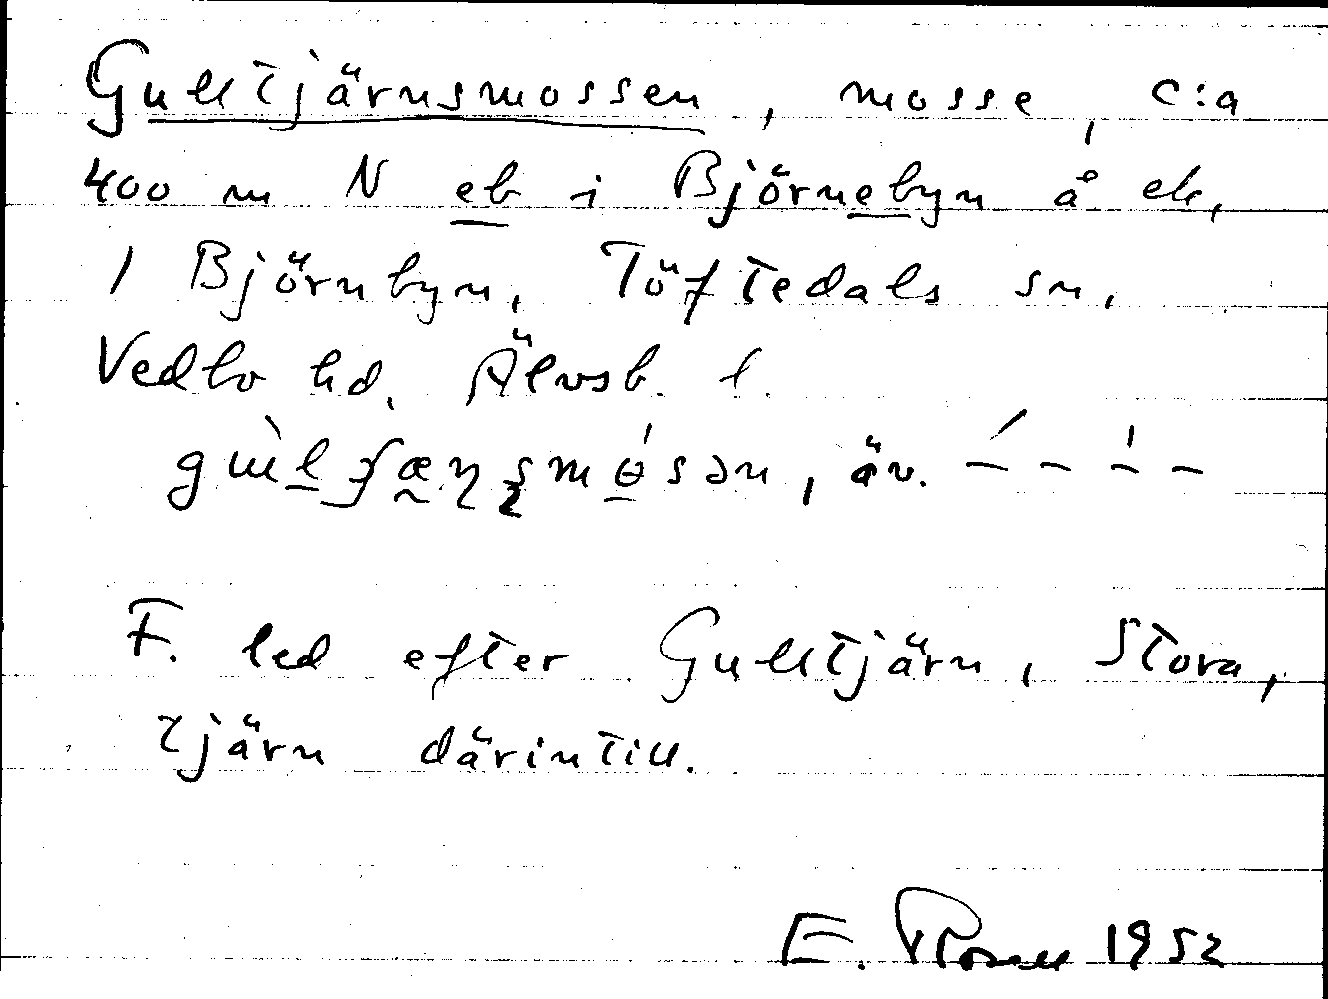 Gulltjärnsmossen, mosse, c:a
400 m N eb i Björnebyn å ek.
1 Björnbyn, Töftedals sn,
Vedbo hd, Älvsb. l.
äv.
F. led efter Gulltjärn, Stora,
tjärn därintill.
E. 1952